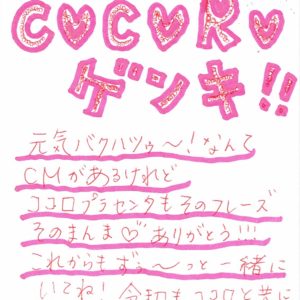 C♥C♥R♥
ゲンキ!!
元気バクハツゥ〜!なんて
CMがあるけれど
ココロプラセンタもそのフレーズ
そのまんま♡ありがとう!!!
これからもずぅ〜っと一緒に
いてね!今朝もココロと共に